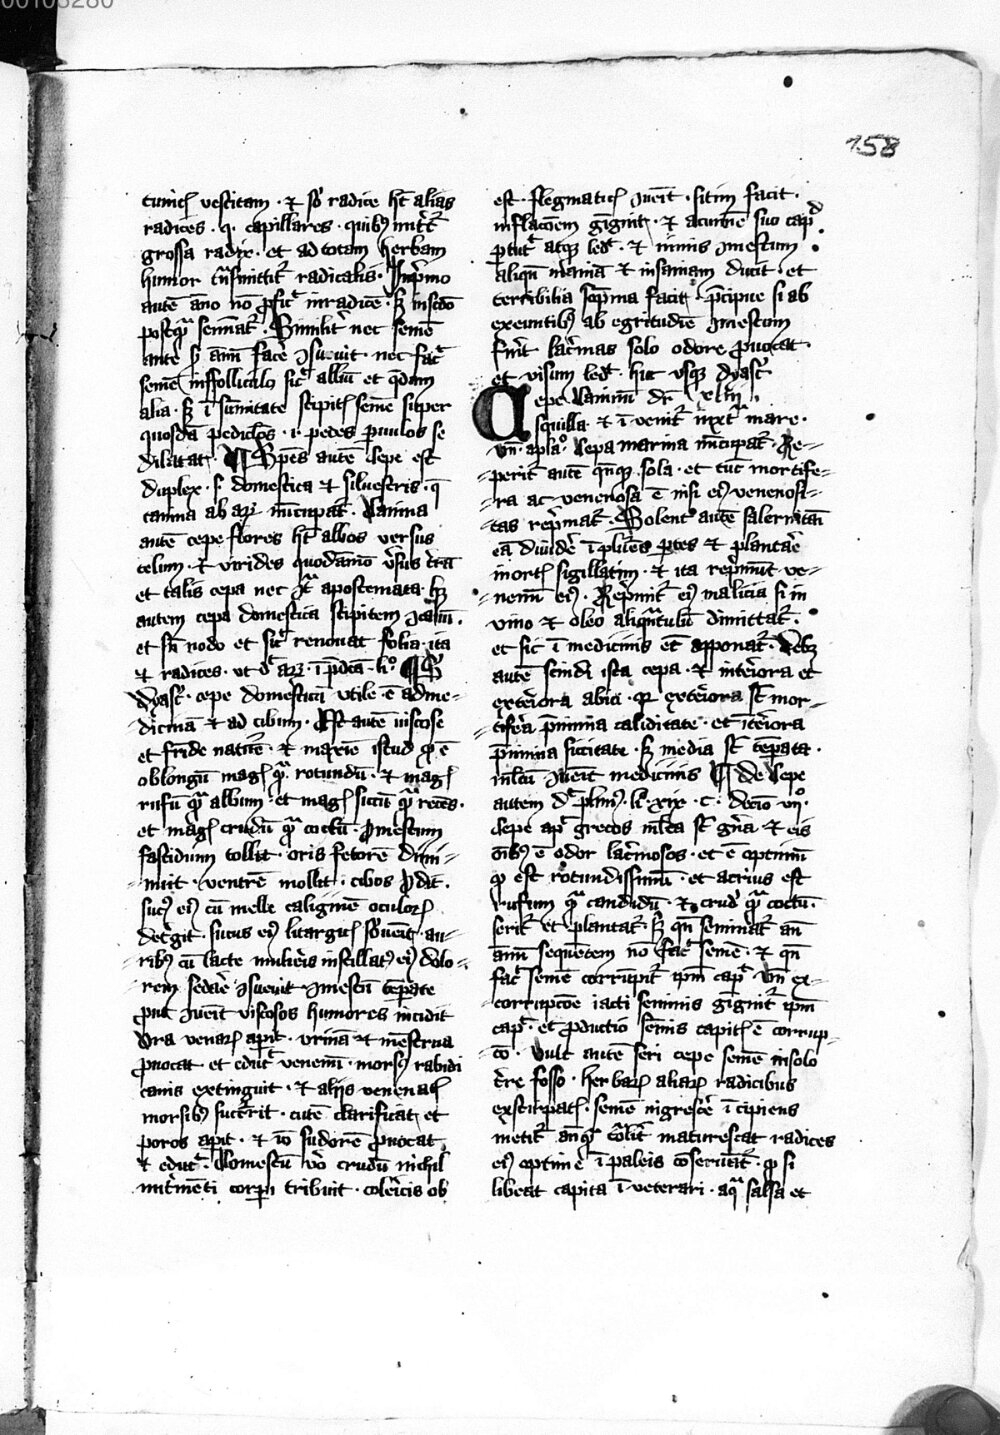 158
tunicis vestitam · et sub radice ht alias
radices · i· capillares · quibus nutritur
grossa radix · et ad totam herbam
humor transmittitur radicalis · In primo
autem anno non proficit in radice · sed in secundo
postquam seminatur · Similiter nec semen
ante secundum annum facere consuevit · nec facit
semen in folliculo sicut allium et quedam
alia · sed in summitate stipitis semen super
quosdam pediculos · i· pedes parvulos se
dilatat · Species autem cepe est
duplex · s· domestica et silvestris · que
canina ab ar· nuncupatur · Canina
autem cepe flores ht albos versus
celum · et virides quodammodo versus terram
et talis cepa nec confert apostemata · habet
autem cepa domestica stipitem concavum ·
et sine nodo et sicut renovat folia · ita
et radices · ut dicit ar· in predicta · li·
dyasc· cepe domesticum utile est ad me-
dicinam et ad cibum · Est autem viscose
et fumide nature · et maxime istud quod est
oblongum magis quam rotundum · et magis
rufum quam album · et magis siccum quam recens ·
et magis crudum quam coctum · Comestum
fastidium tollit · oris fetorem dimi-
nuit · ventrem mollit · cibos condit ·
succus eius cum melle caliginem oculorum
detergit · sucus eius litargicis subvenit · au-
ribus cum lacte mulieris instillatus eius dolo-
rem sedare consuevit · comestum temperate
prout convenit viscosos humores incidit
ora venarum aperit · urinam et menstrua
provocat et educit venenum · morsus rabidi
canis extinguit · et aliis venenatis
morsibus succurrit · cutem clarificat et
poros aperit · et ideo sudorem provocat
et educit · Comestum vero crudum nichil
nutrimenti corpori tribuit · colericis ob
est · flegmaticis convenit · sitim facit ·
inflationem gignit · et acumine suo caput
perturbat atque ledit · et nimis comestum
aliquando in maniam et insaniam ducit · et
terribilia sompnia facit precipue si ab
exeuntibus ab egritudine comestum
fuerit lacrimas solo odore provocat ·
et visum ledit · huc usque dyasc·
Cepe Caninum dicitur xliii·
squilla · et invenitur iuxta mare ·
unde a plato· Cepa marina nuncupatur · Re-
peritur autem quandoque sola · et tunc mortife-
ra ac venenosa est nisi eius venenosi-
tas reprimatur · Solent autem salernitani
eam dividere in plures partes et plantare
in ortis sigillatim · et ita reprimunt ve-
nenum eius · Reprimitur eius malicia si in
vino et oleo aliquantulum dimittatur ·
et sic in medicinis est apponatur · Debet
autem scindi ista cepa · et interiora et
exteriora abici · quia exteriora sunt mor-
tifera pre nimia caliditate · et interiora
pre nimia siccitate · sed media sunt temperata ·
multum convenit medicinis De Cepe
autem dicit plinius · li· xix · c· decimo vii·
Cepe apud grecos multa sunt genera et eis
omnibus est odor lacrimosus · et est optimum
quod est rotundissimum · et acrius est
rufum quam candidum · et crudum quam coctum ·
seritur et plantatur · sed quando seminatur ante
annum sequentem non facit semen · et quando
facit semen corrumpitur ipsum caput · Unde ex
corrupcione iacti seminis gignitur ipsum
caput · et productio seminis capitis est corrup-
cio · Vult autem seri cepe semen in solo
terre fosso · herbarum aliarum radicibus
exstirpatis · semen nigrescere incipiens
metitur antequam totaliter maturescat radices
eius optime in paleis conservantur · quod si
libeat capita inveterari · aqua salsa et